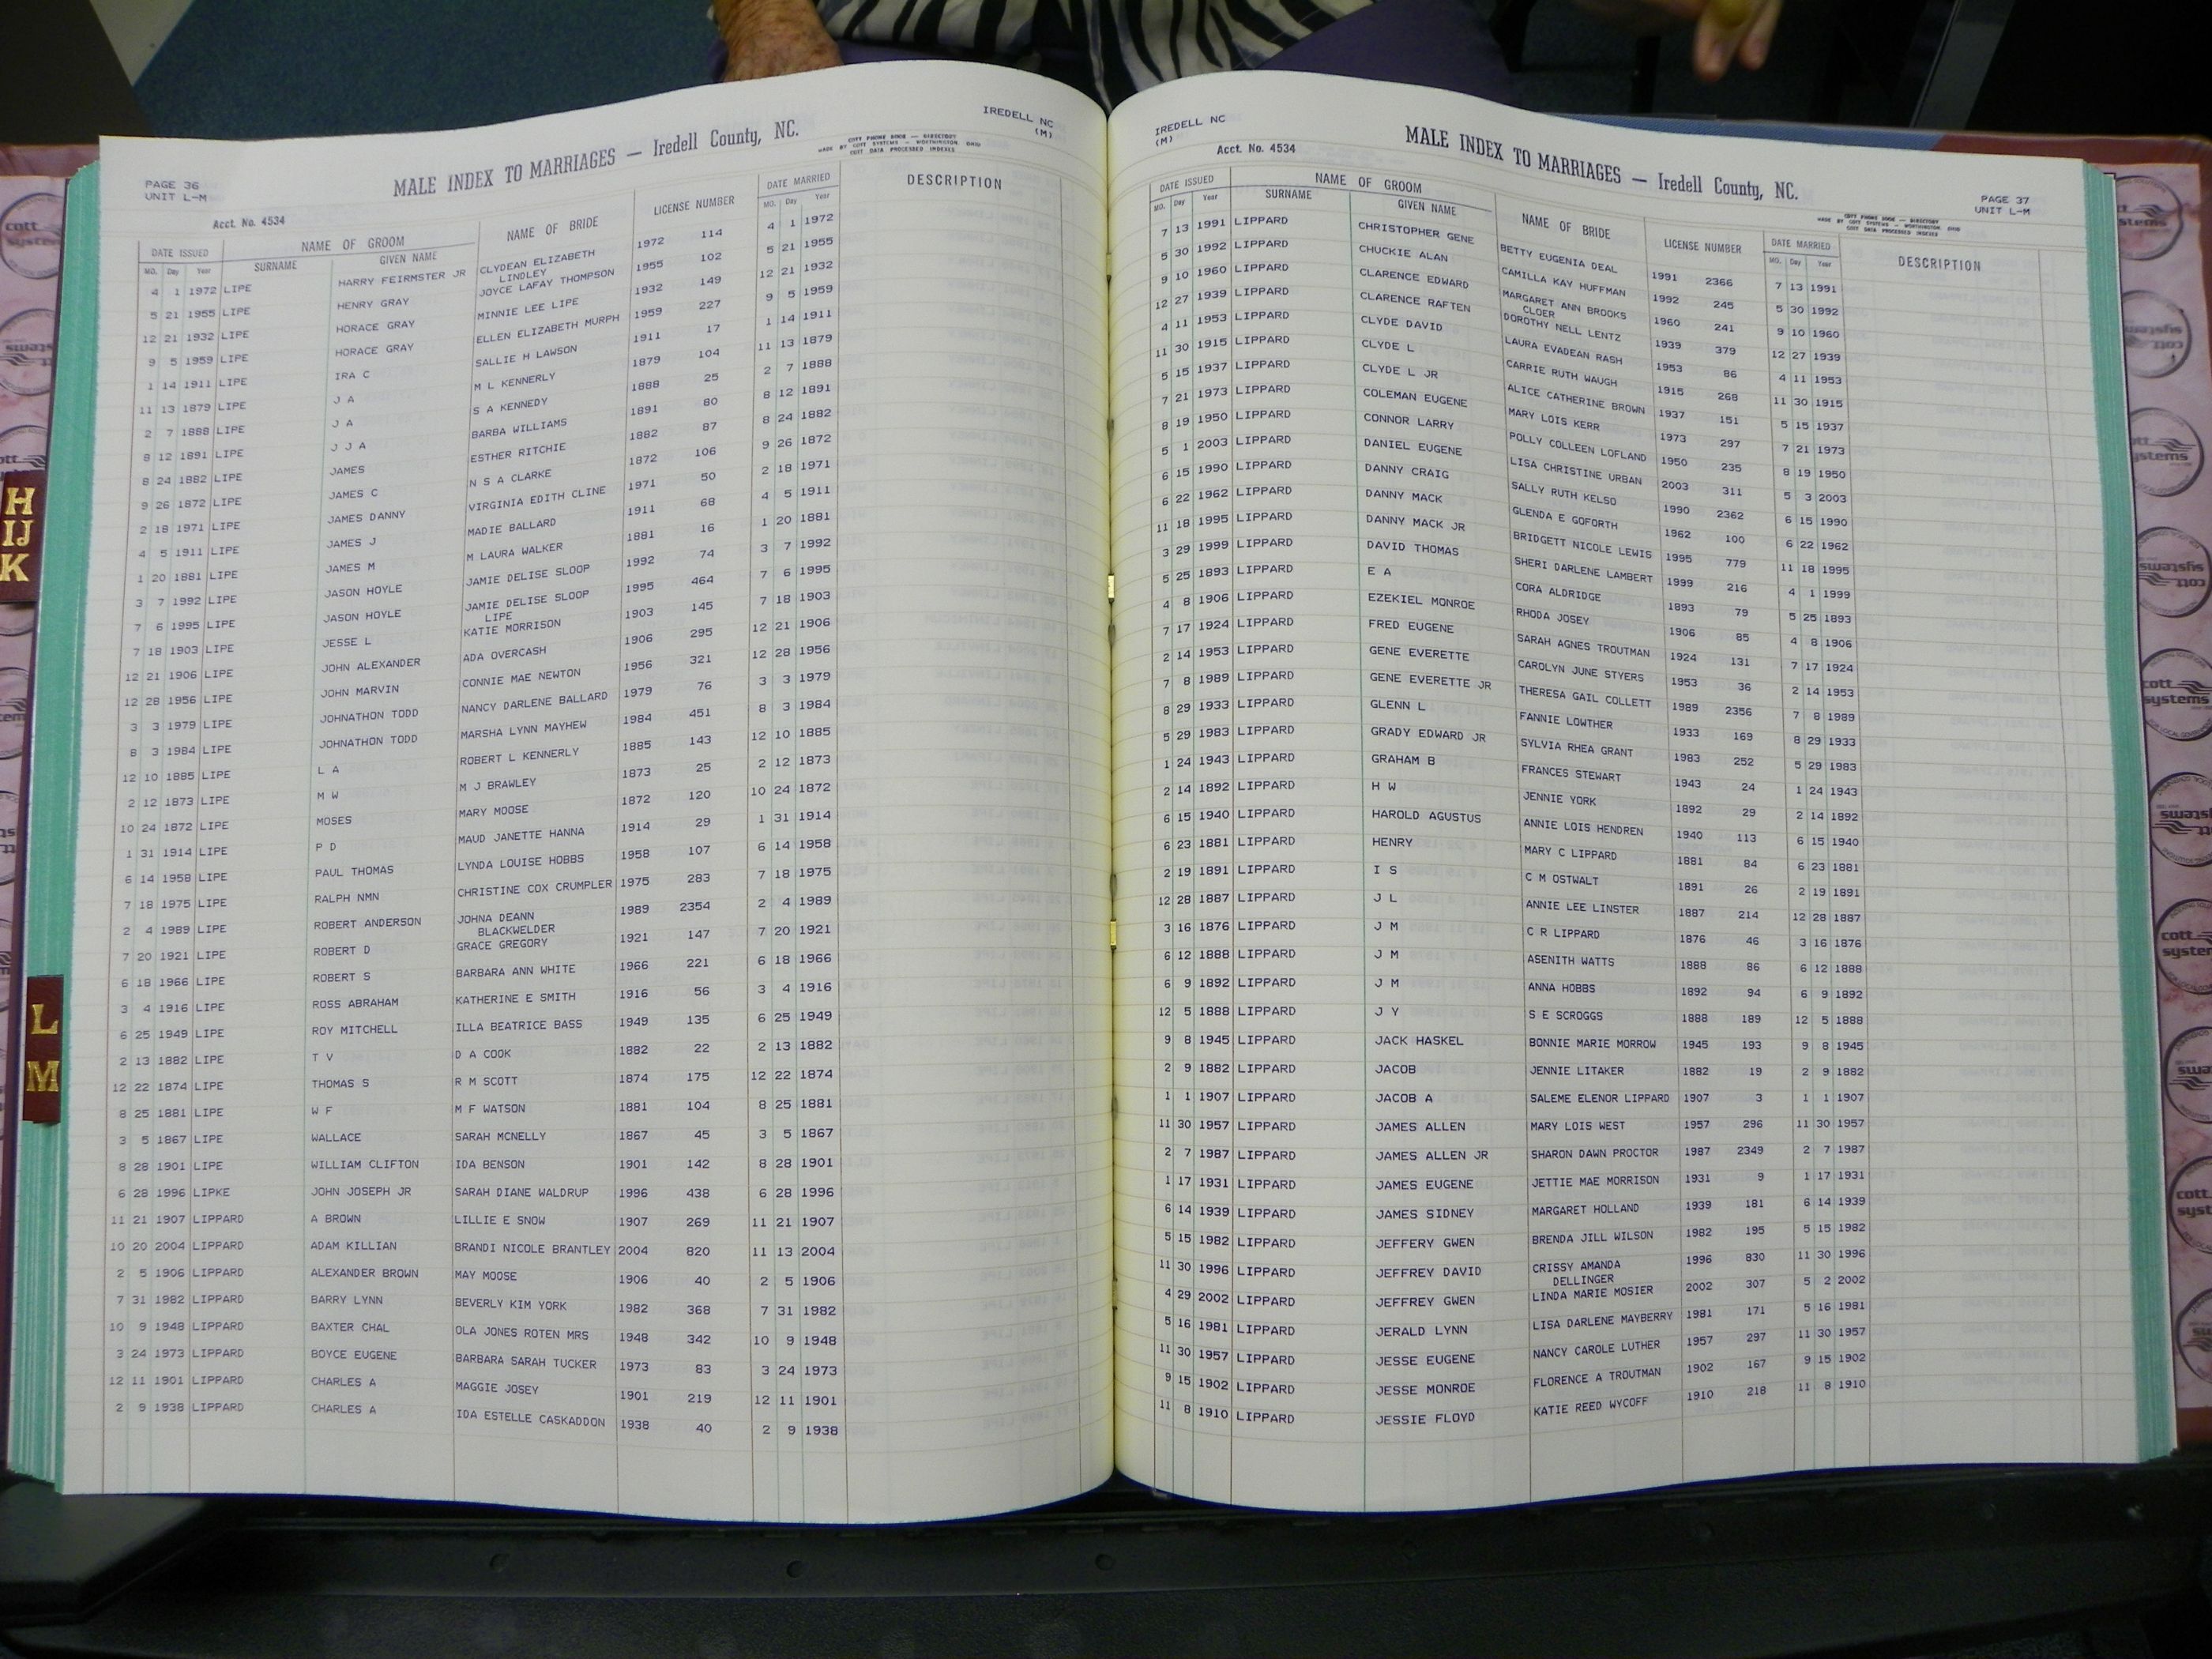 IREDELL NC
(M)
MALE INDEX TO MARRIAGES — Iredell County, NC.
COTT PHONE BOOK — DIRECTORY
MADE BY COTT SYSTEMS — WORTHINGTON, OHIO
COTT DATA PROCESSED INDEXES
PAGE 36
UNIT L-M
Acct. No. 4534
DATE ISSUED NAME OF GROOM NAME OF BRIDE LICENSE NUMBER DATE MARRIED DESCRIPTION
MO. Day Year SURNAME GIVEN NAME MO. Day Year
4 1 1972 LIPE HARRY FEIRMSTER JR CLYDEAN ELIZABETH 1972 114 4 1 1972
LINDLEY
5 21 1955 LIPE HENRY GRAY JOYCE LAFAY THOMPSON 1955 102 5 21 1955
12 21 1932 LIPE HORACE GRAY MINNIE LEE LIPE 1932 149 12 21 1932
9 5 1959 LIPE HORACE GRAY ELLEN ELIZABETH MURPH 1959 227 9 5 1959
1 14 1911 LIPE IRA C SALLIE H LAWSON 1911 17 1 14 1911
11 13 1879 LIPE J A M L KENNERLY 1879 104 11 13 1879
2 7 1888 LIPE J A S A KENNEDY 1888 25 2 7 1888
8 12 1891 LIPE J J A BARBA WILLIAMS 1891 80 8 12 1891
8 24 1882 LIPE JAMES ESTHER RITCHIE 1882 87 8 24 1882
9 26 1872 LIPE JAMES C N S A CLARKE 1872 106 9 26 1872
2 18 1971 LIPE JAMES DANNY VIRGINIA EDITH CLINE 1971 50 2 18 1971
4 5 1911 LIPE JAMES J MADIE BALLARD 1911 68 4 5 1911
1 20 1881 LIPE JAMES M M LAURA WALKER 1881 16 1 20 1881
3 7 1992 LIPE JASON HOYLE JAMIE DELISE SLOOP 1992 74 3 7 1992
7 6 1995 LIPE JASON HOYLE JAMIE DELISE SLOOP 1995 464 7 6 1995
LIPE
7 18 1903 LIPE JESSE L KATIE MORRISON 1903 145 7 18 1903
12 21 1906 LIPE JOHN ALEXANDER ADA OVERCASH 1906 295 12 21 1906
12 28 1956 LIPE JOHN MARVIN CONNIE MAE NEWTON 1956 321 12 28 1956
3 3 1979 LIPE JOHNATHON TODD NANCY DARLENE BALLARD 1979 76 3 3 1979
8 3 1984 LIPE JOHNATHON TODD MARSHA LYNN MAYHEW 1984 451 8 3 1984
12 10 1885 LIPE L A ROBERT L KENNERLY 1885 143 12 10 1885
2 12 1873 LIPE M W M J BRAWLEY 1873 25 2 12 1873
10 24 1872 LIPE MOSES MARY MOOSE 1872 120 10 24 1872
1 31 1914 LIPE P D MAUD JANETTE HANNA 1914 29 1 31 1914
6 14 1958 LIPE PAUL THOMAS LYNDA LOUISE HOBBS 1958 107 6 14 1958
7 18 1975 LIPE RALPH NMN CHRISTINE COX CRUMPLER 1975 283 7 18 1975
2 4 1989 LIPE ROBERT ANDERSON JOHNA DEANN 1989 2354 2 4 1989
BLACKWELDER
7 20 1921 LIPE ROBERT D GRACE GREGORY 1921 147 7 20 1921
6 18 1966 LIPE ROBERT S BARBARA ANN WHITE 1966 221 6 18 1966
3 4 1916 LIPE ROSS ABRAHAM KATHERINE E SMITH 1916 56 3 4 1916
6 25 1949 LIPE ROY MITCHELL ILLA BEATRICE BASS 1949 135 6 25 1949
2 13 1882 LIPE T V D A COOK 1882 22 2 13 1882
12 22 1874 LIPE THOMAS S R M SCOTT 1874 175 12 22 1874
8 25 1881 LIPE W F M F WATSON 1881 104 8 25 1881
3 5 1867 LIPE WALLACE SARAH MCNELLY 1867 45 3 5 1867
8 28 1901 LIPE WILLIAM CLIFTON IDA BENSON 1901 142 8 28 1901
6 28 1996 LIPKE JOHN JOSEPH JR SARAH DIANE WALDRUP 1996 438 6 28 1996
11 21 1907 LIPPARD A BROWN LILLIE E SNOW 1907 269 11 21 1907
10 20 2004 LIPPARD ADAM KILLIAN BRANDI NICOLE BRANTLEY 2004 820 11 13 2004
2 5 1906 LIPPARD ALEXANDER BROWN MAY MOOSE 1906 40 2 5 1906
7 31 1982 LIPPARD BARRY LYNN BEVERLY KIM YORK 1982 368 7 31 1982
10 9 1948 LIPPARD BAXTER CHAL OLA JONES ROTEN MRS 1948 342 10 9 1948
3 24 1973 LIPPARD BOYCE EUGENE BARBARA SARAH TUCKER 1973 83 3 24 1973
12 11 1901 LIPPARD CHARLES A MAGGIE JOSEY 1901 219 12 11 1901
2 9 1938 LIPPARD CHARLES A IDA ESTELLE CASKADDON 1938 40 2 9 1938
H
IJ
K
L
M
IREDELL NC
(M)
Acct. No. 4534
MALE INDEX TO MARRIAGES — Iredell County, NC.
COTT PHONE BOOK — DIRECTORY
MADE BY COTT SYSTEMS — WORTHINGTON, OHIO
COTT DATA PROCESSED INDEXES
PAGE 37
UNIT L-M
DATE ISSUED NAME OF GROOM NAME OF BRIDE LICENSE NUMBER DATE MARRIED DESCRIPTION
MO. Day Year SURNAME GIVEN NAME MO. Day Year
7 13 1991 LIPPARD CHRISTOPHER GENE BETTY EUGENIA DEAL 1991 2366 7 13 1991
5 30 1992 LIPPARD CHUCKIE ALAN CAMILLA KAY HUFFMAN 1992 245 5 30 1992
9 10 1960 LIPPARD CLARENCE EDWARD MARGARET ANN BROOKS 1960 241 9 10 1960
CLOER
12 27 1939 LIPPARD CLARENCE RAFTEN DOROTHY NELL LENTZ 1939 379 12 27 1939
4 11 1953 LIPPARD CLYDE DAVID LAURA EVADEAN RASH 1953 86 4 11 1953
11 30 1915 LIPPARD CLYDE L CARRIE RUTH WAUGH 1915 268 11 30 1915
5 15 1937 LIPPARD CLYDE L JR ALICE CATHERINE BROWN 1937 151 5 15 1937
7 21 1973 LIPPARD COLEMAN EUGENE MARY LOIS KERR 1973 297 7 21 1973
8 19 1950 LIPPARD CONNOR LARRY POLLY COLLEEN LOFLAND 1950 235 8 19 1950
5 1 2003 LIPPARD DANIEL EUGENE LISA CHRISTINE URBAN 2003 311 5 3 2003
6 15 1990 LIPPARD DANNY CRAIG SALLY RUTH KELSO 1990 2362 6 15 1990
6 22 1962 LIPPARD DANNY MACK GLENDA E GOFORTH 1962 100 6 22 1962
11 18 1995 LIPPARD DANNY MACK JR BRIDGETT NICOLE LEWIS 1995 779 11 18 1995
3 29 1999 LIPPARD DAVID THOMAS SHERI DARLENE LAMBERT 1999 216 4 1 1999
5 25 1893 LIPPARD E A CORA ALDRIDGE 1893 79 5 25 1893
4 8 1906 LIPPARD EZEKIEL MONROE RHODA JOSEY 1906 85 4 8 1906
7 17 1924 LIPPARD FRED EUGENE SARAH AGNES TROUTMAN 1924 131 7 17 1924
2 14 1953 LIPPARD GENE EVERETTE CAROLYN JUNE STYERS 1953 36 2 14 1953
7 8 1989 LIPPARD GENE EVERETTE JR THERESA GAIL COLLETT 1989 2356 7 8 1989
8 29 1933 LIPPARD GLENN L FANNIE LOWTHER 1933 169 8 29 1933
5 29 1983 LIPPARD GRADY EDWARD JR SYLVIA RHEA GRANT 1983 252 5 29 1983
1 24 1943 LIPPARD GRAHAM B FRANCES STEWART 1943 24 1 24 1943
2 14 1892 LIPPARD H W JENNIE YORK 1892 29 2 14 1892
6 15 1940 LIPPARD HAROLD AGUSTUS ANNIE LOIS HENDREN 1940 113 6 15 1940
6 23 1881 LIPPARD HENRY MARY C LIPPARD 1881 84 6 23 1881
2 19 1891 LIPPARD I S C M OSTWALT 1891 26 2 19 1891
12 28 1887 LIPPARD J L ANNIE LEE LINSTER 1887 214 12 28 1887
3 16 1876 LIPPARD J M C R LIPPARD 1876 46 3 16 1876
6 12 1888 LIPPARD J M ASENITH WATTS 1888 86 6 12 1888
6 9 1892 LIPPARD J M ANNA HOBBS 1892 94 6 9 1892
12 5 1888 LIPPARD J Y S E SCROGGS 1888 189 12 5 1888
9 8 1945 LIPPARD JACK HASKEL BONNIE MARIE MORROW 1945 193 9 8 1945
2 9 1882 LIPPARD JACOB JENNIE LITAKER 1882 19 2 9 1882
1 1 1907 LIPPARD JACOB A SALEME ELENOR LIPPARD 1907 3 1 1 1907
11 30 1957 LIPPARD JAMES ALLEN MARY LOIS WEST 1957 296 11 30 1957
2 7 1987 LIPPARD JAMES ALLEN JR SHARON DAWN PROCTOR 1987 2349 2 7 1987
1 17 1931 LIPPARD JAMES EUGENE JETTIE MAE MORRISON 1931 9 1 17 1931
6 14 1939 LIPPARD JAMES SIDNEY MARGARET HOLLAND 1939 181 6 14 1939
5 15 1982 LIPPARD JEFFERY GWEN BRENDA JILL WILSON 1982 195 5 15 1982
11 30 1996 LIPPARD JEFFREY DAVID CRISSY AMANDA 1996 830 11 30 1996
DELLINGER
4 29 2002 LIPPARD JEFFREY GWEN LINDA MARIE MOSIER 2002 307 5 2 2002
5 16 1981 LIPPARD JERALD LYNN LISA DARLENE MAYBERRY 1981 171 5 16 1981
11 30 1957 LIPPARD JESSE EUGENE NANCY CAROLE LUTHER 1957 297 11 30 1957
9 15 1902 LIPPARD JESSE MONROE FLORENCE A TROUTMAN 1902 167 9 15 1902
11 8 1910 LIPPARD JESSIE FLOYD KATIE REED WYCOFF 1910 218 11 8 1910
cott
systems